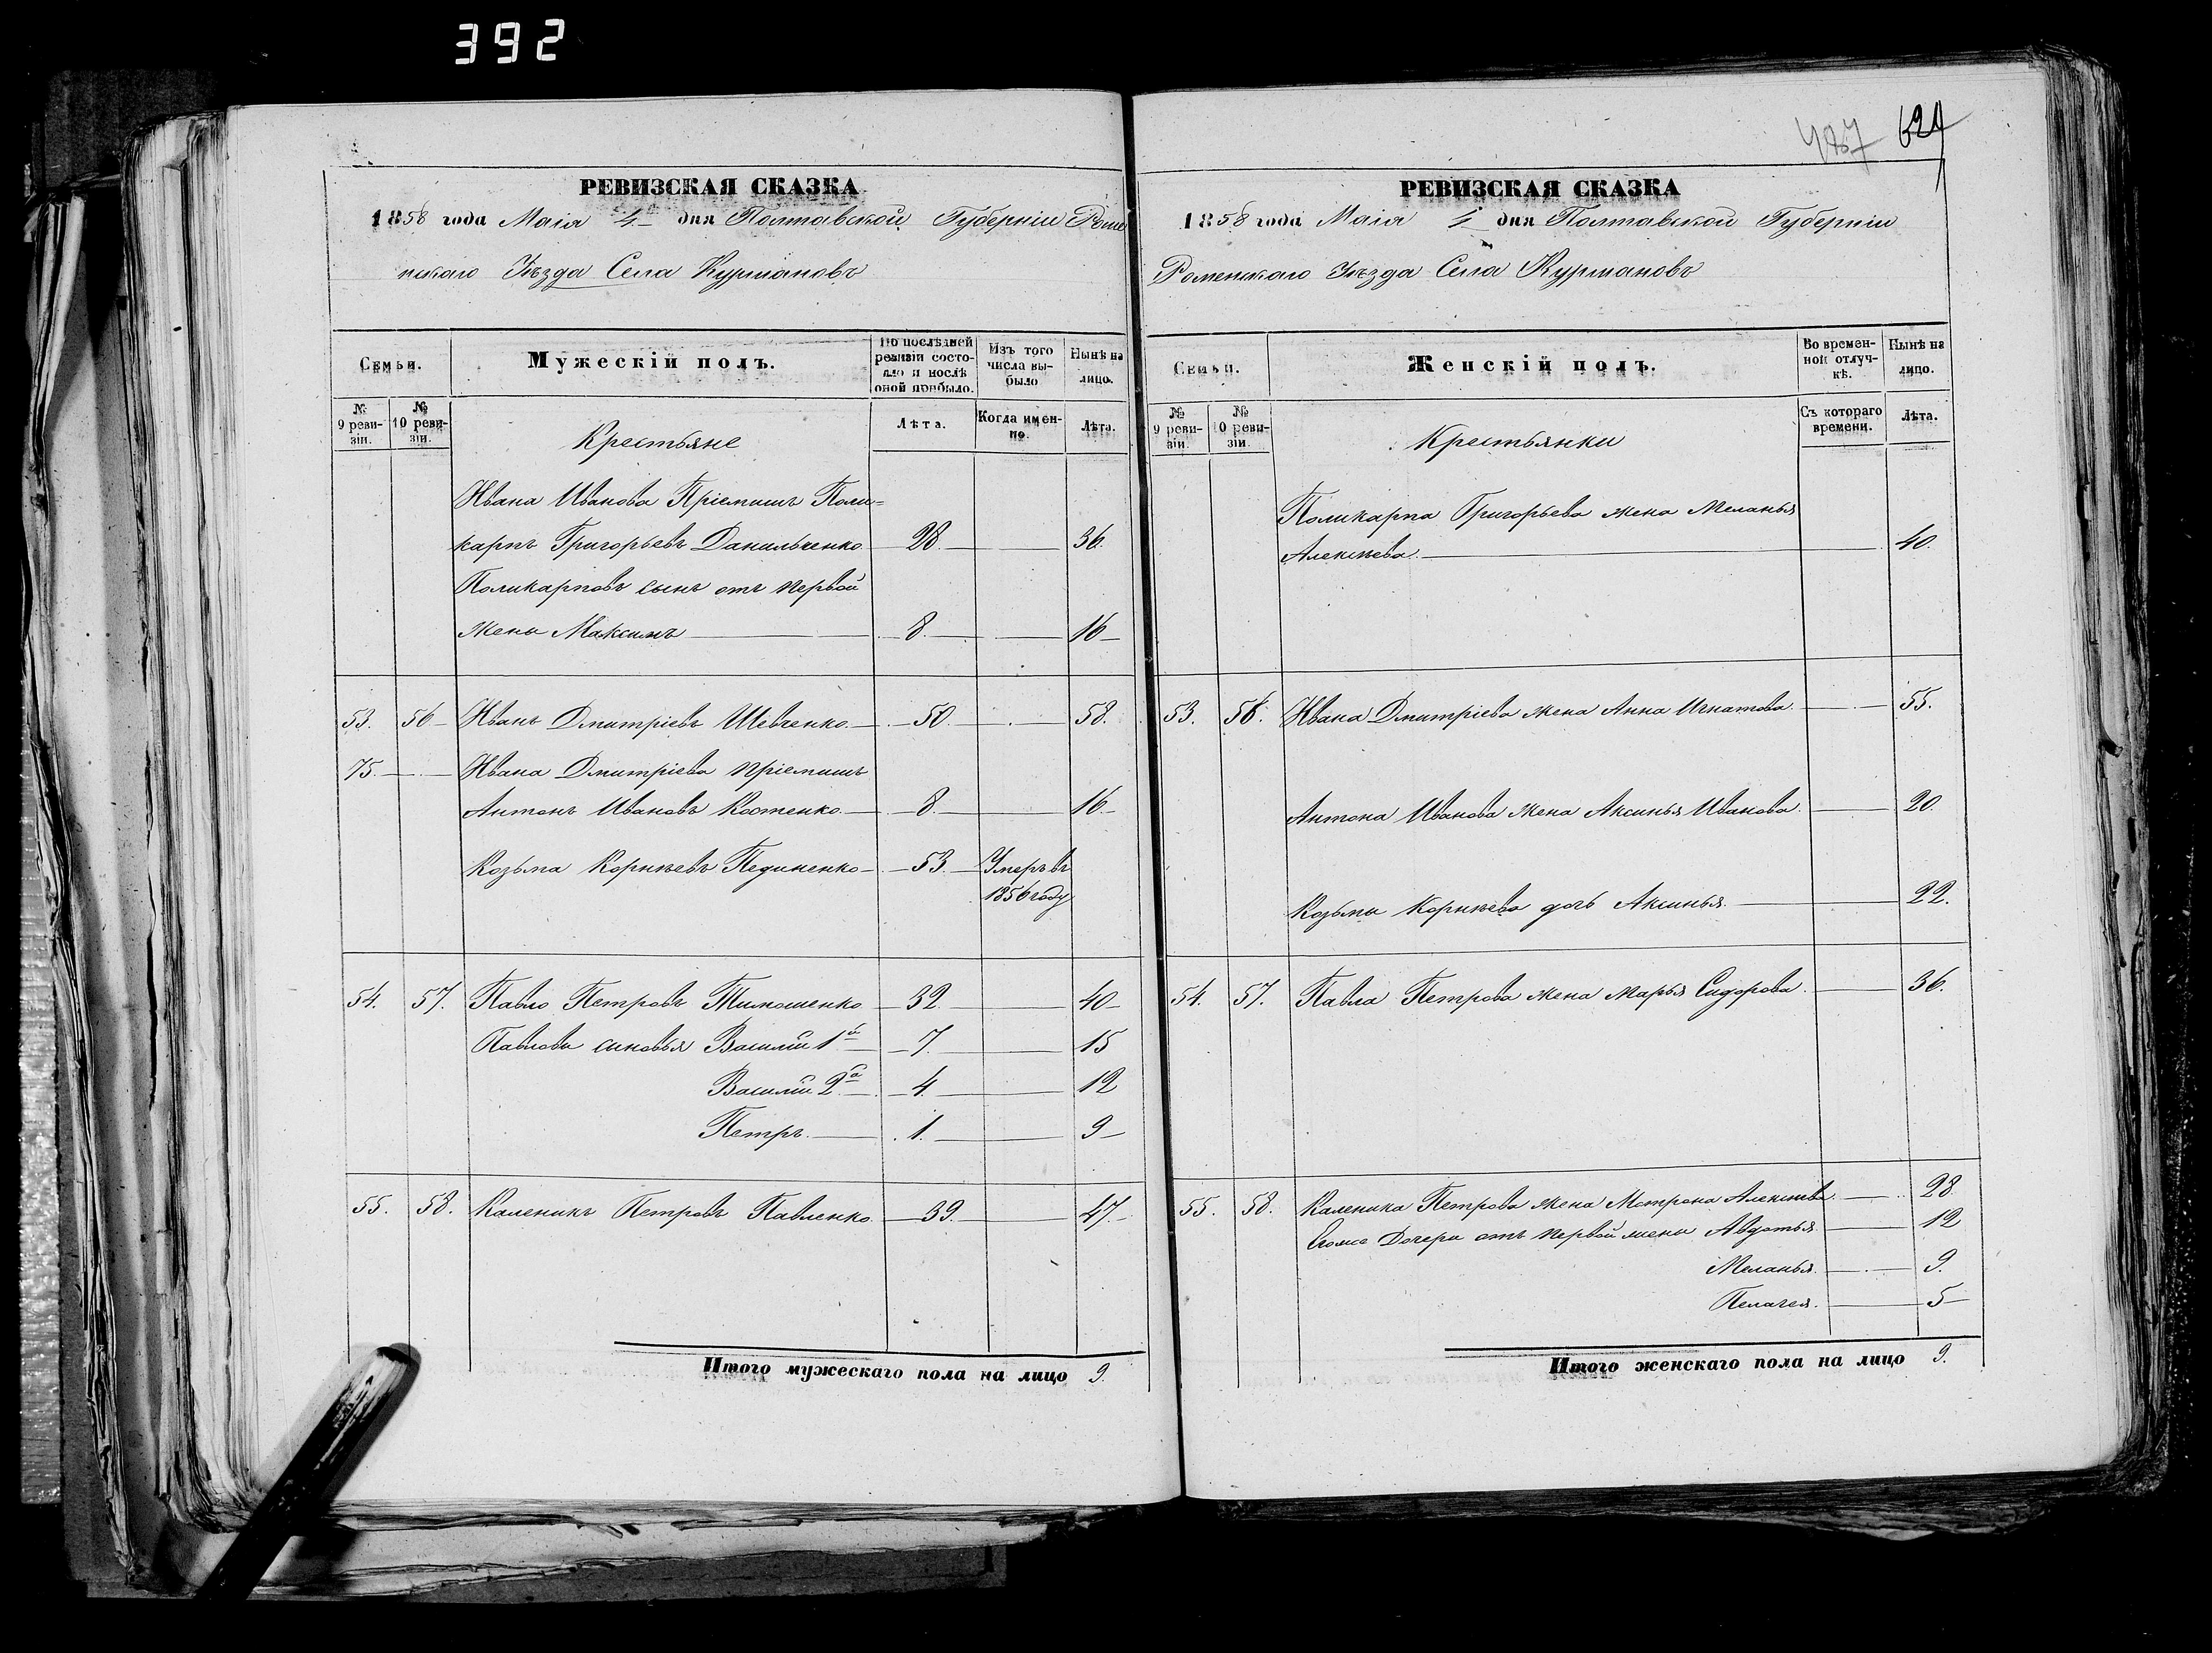 392
РЕВИЗСКАЯ СКАЗКА
1858 года Маія 4 дня Полтавской Губерніи Роме
нскаго Уѣзда Села Курмановъ
Семьи.
Мужескій полъ.
По послѣдней ревизіи состояло и послѣ оной прибыло.
Изъ того числа выбыло
Нынѣ на лицо.
№ 9 ревизіи.
№ 10 ревизіи.
Крестьяне
Лѣта.
Когда именно.
Лѣта.
Ивана Иванова Пріемишъ Поли=
карпъ Григорьевъ Данильченко 28. 36.
Поликарповъ сынъ отъ первой
жены Максимъ 8. 16
53. 56 Иванъ Дмитріевъ Шевченко 50. 58.
75. Ивана Дмитріева пріемишъ
Антонъ Ивановъ Костенко 8. 16
Козьма Корнѣевъ Пединенко 53. Умеръ въ
1856 году
54. 57. Павло Петровъ Тимошенко 32. 40
Павловы синовья Василій 1й 7. 15
Василій 2й 4. 12
Петръ 1. 9
55. 58. Каленикъ Петровъ Павленко 39. 47.
Итого мужескаго пола на лицо 9.
487 624
РЕВИЗСКАЯ СКАЗКА
1858 года Маія 4 дня Полтавской Губерніи
Роменскаго Уѣзда Села Курмановъ
Семьи.
Женскій полъ.
Во временной отлучкѣ.
Нынѣ на лицо.
№ 9 ревизіи.
№ 10 ревизіи.
Крестьянки
Съ котораго времени.
Лѣта.
Поликарпа Григорьева жена Меланья
Алексѣева 40.
53. 56. Ивана Дмитріева жена Анна Игнатова 55.
Антона Иванова жена Аксинья Иванова 20.
Козьмы Корнѣева дочь Аксинья 22.
54. 57. Павла Петрова жена Марья Сидорова 36.
55. 58. Каленика Петрова жена Мотрона Алексѣева 28
Егоже Дочери отъ первой жены Авдотья 12
Меланья 9.
Пелагея 5
Итого женскаго пола на лицо 9.